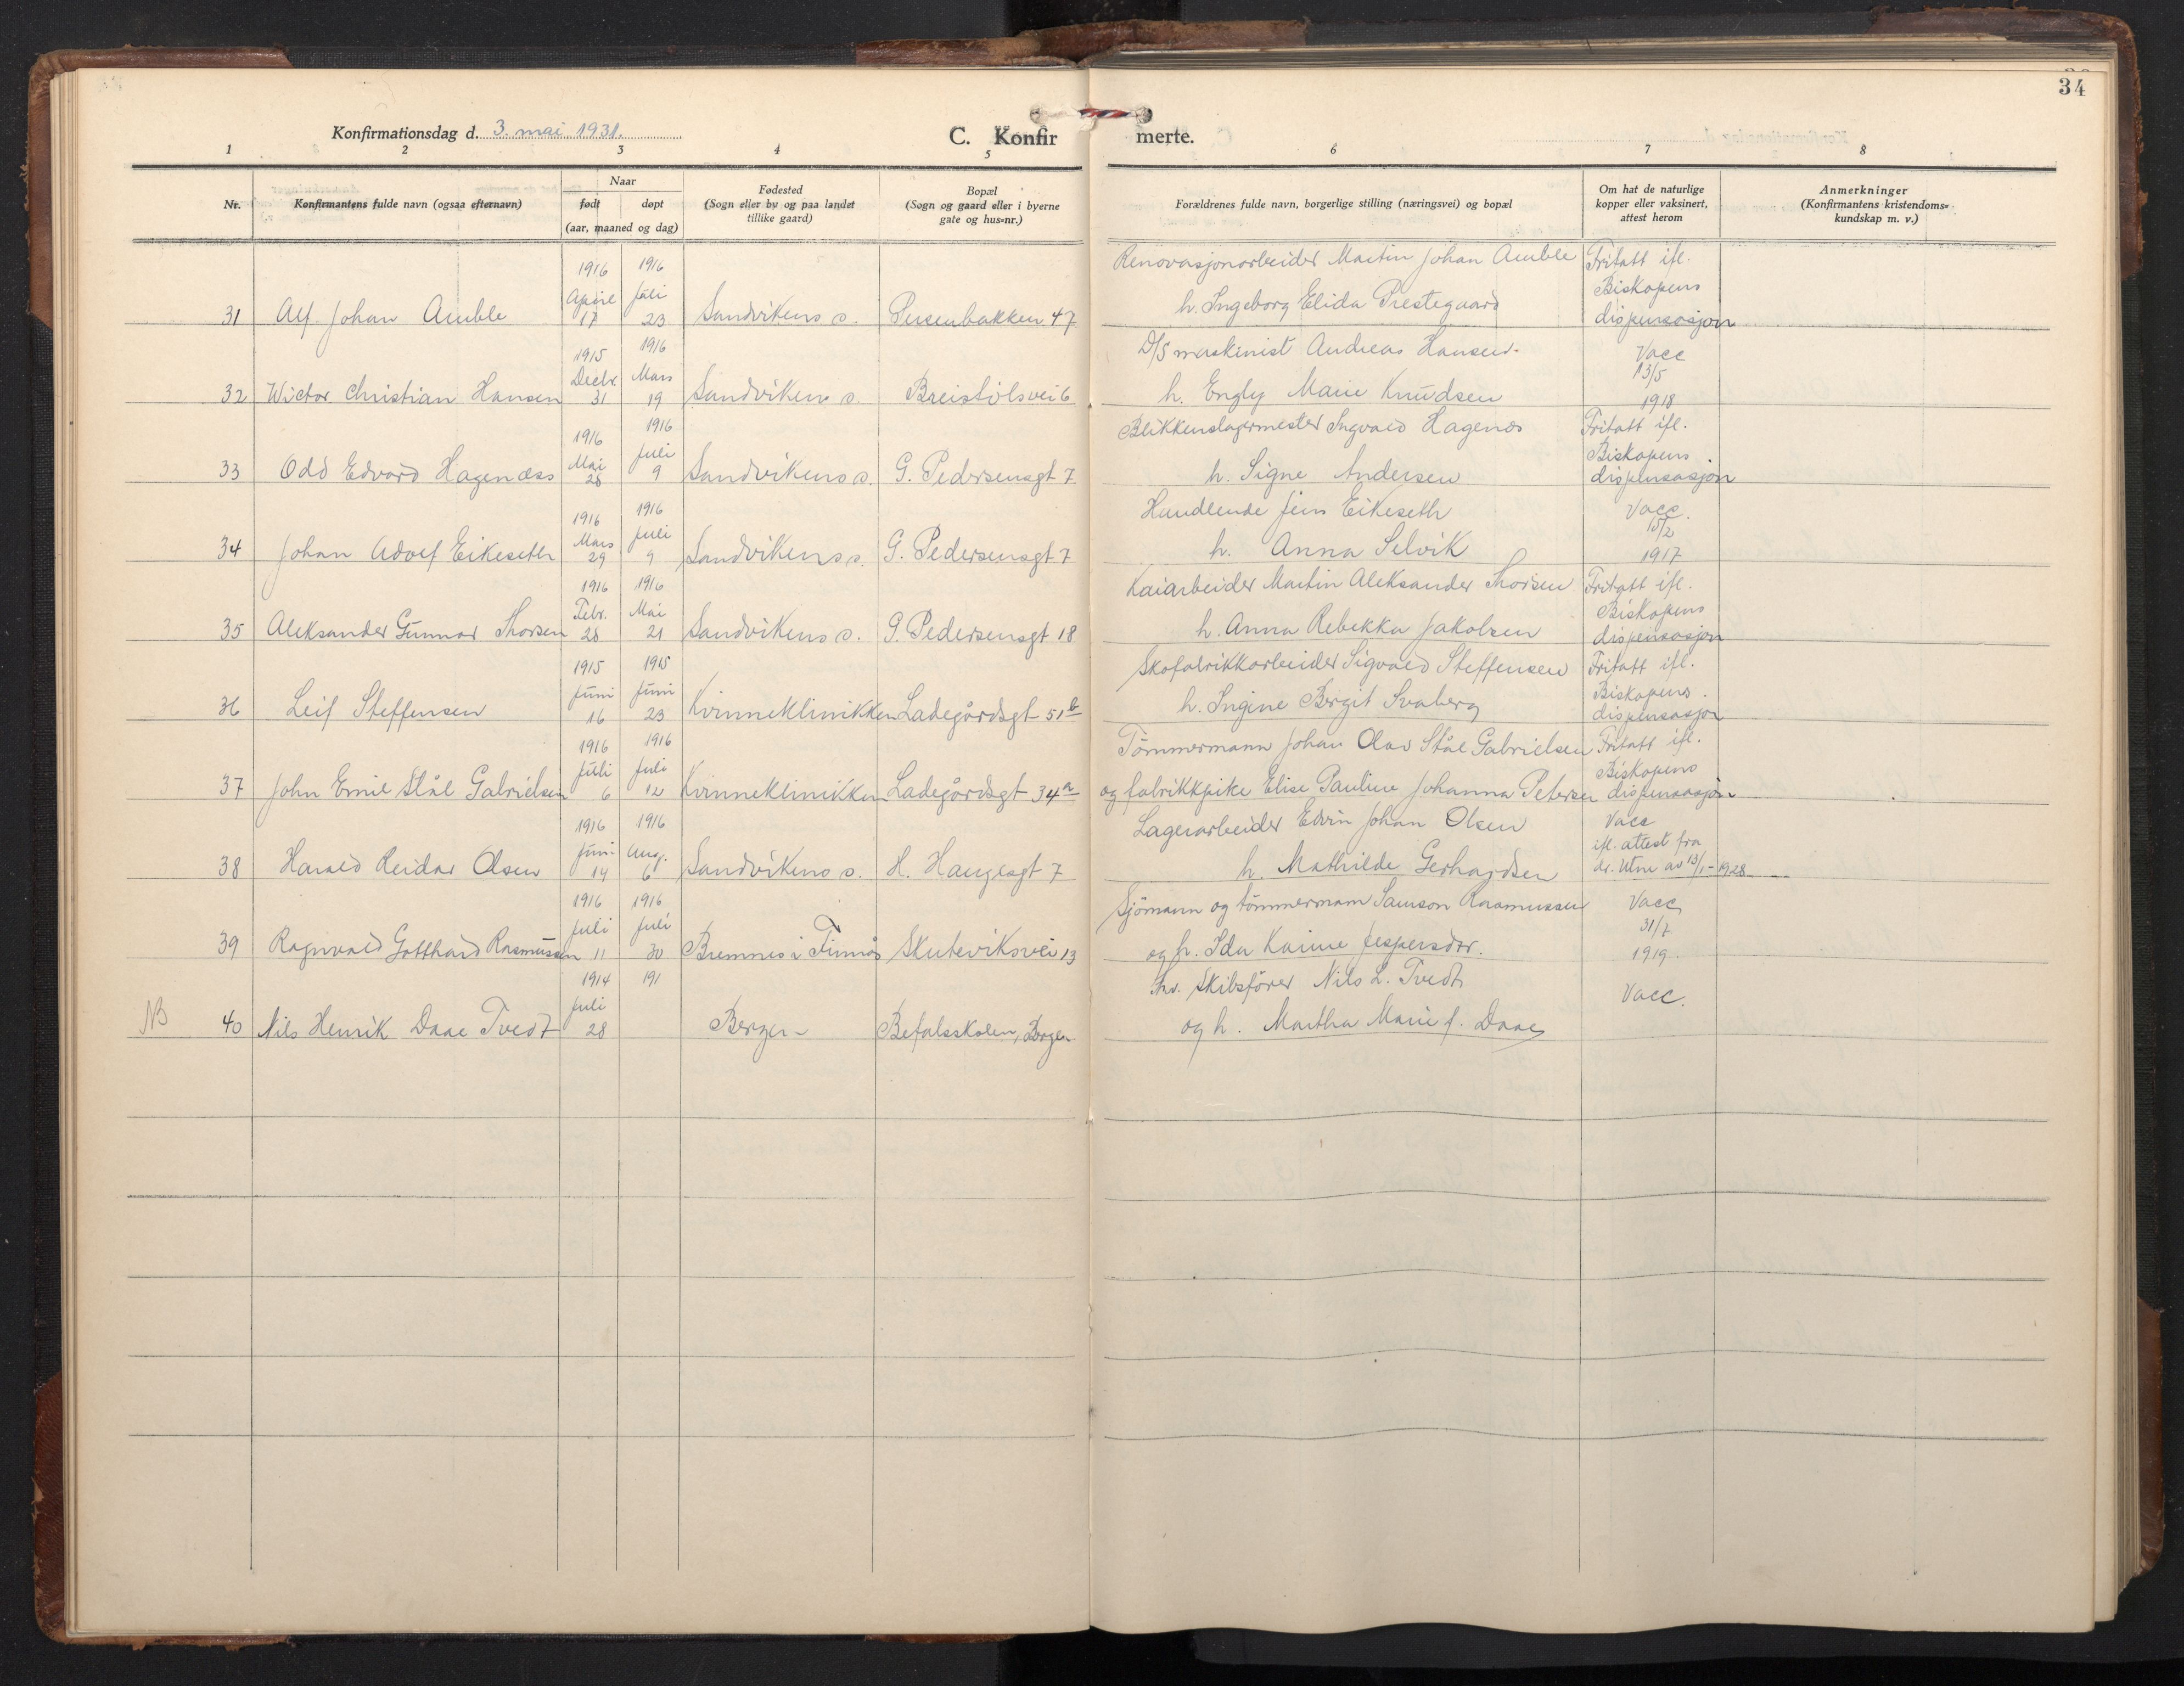 34
Konfirmationsdag d. 3. mai 1931.
C. Konfirmerte.
1 2 3 4 5 6 7 8
Nr.
Konfirmantens fulde navn (ogsaa efternavn)
Naar
født døpt
(aar, maaned og dag)
Fødested
(Sogn eller by og paa landet
tillike gaard)
Bopæl
(Sogn og gaard eller i byerne
gate og hus=nr.)
Forældrenes fulde navn, borgerlige stilling (næringsvei) og bopæl
Om hat de naturlige
kopper eller vaksinert,
attest herom
Anmerkninger
(Konfirmantens kristendoms=
kundskap m. v.)
1916 1916 Renovasjonarbeider Martin Johan Amble Fritatt ifl.
April Juli Biskopens
31 Alf Johan Amble 17 23 Sandvikens s. Persenbakken 47 h. Ingeborg Elida Prestegaard dispensasjon
1915 1916 D/S maskinist Andreas Hansen. Vacc
Decbr. Mars 13/5
32 Wictor Christian Hansen 31 19 Sandvikens s. Breistölsvei 6 h. Engly Marie Knudsen 1918
1916 1916 Blikkenslagermester Ingvald Hagenæs Fritatt ifl.
Mai Juli Biskopens
33 Odd Edvard Hagenæss 28 9 Sandvikens s. G. Pedersensgt 7 h. Signe Andersen dispensasjon
1916 1916 Handlende Jens Eikeseth Vacc.
Mars Juli 15/2
34 Johan Adolf Eikeseth 29 9 Sandvikens s. G. Pedersensgt 7 h. Anna Selvik 1917
1916 1916 Kaiarbeider Martin Aleksander Thorsen Fritatt ifl.
Febr. Mai Biskopens
35 Aleksander Gunnar Thorsen 28 21 Sandvikens s. G. Pedersensgt 18 h. Anna Rebekka Jakobsen dispensasjon
1915 1915 Skofabrikkarbeider Sigvald Steffensen Fritatt ifl.
Juni Juni Biskopens
36 Leif Steffensen 16 23 Kvinneklinikken Ladegårdsgt 51b h. Ingine Bergit Svaberg dispensasjon
1916 1916 Tömmermann Johan Olav Stål Gabrielsen Fritatt ifl.
Juli Juli Biskopens
37 John Emil Stål Gabrielsen 6 12 Kvinneklinikken Ladegårdsgt 34a og fabrikkpike Elise Pauline Johanna Petersen dispensasjon
1916 1916 Lagerarbeider Edvin Johan Olsen Vacc
Juni Aug. ifl. attest fra
38 Harald Reidar Olsen 14 6 Sandvikens s. H. Haugesgt 7 h. Mathilde Gerhardsen dr. Utne av 13/1 - 1928
1916 1916 Sjömann og tömmermann Samson Rasmussen Vacc
Juli Juli 31/7
39 Ragnvald Gotthard Rasmussen 11 30 Bremnes i Finnås Skuteviksvei 13 og h. Ida Karine Jespersdtr. 1919.
1914 191 Skibsförer Nils L. Tvedt Vacc.
Juli
NB 40 Nils Henrik Daae Tvedt 28 Bergen Befalsskolen, Bergen og h. Martha Marie f. Daae